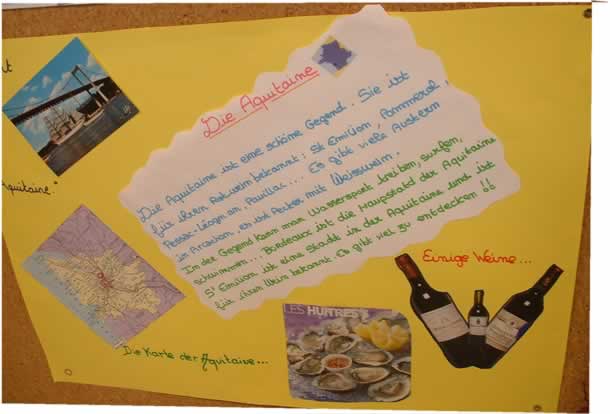 Die Aquitaine
Die Aquitaine ist eine schöne Gegend. Sie ist
für ihren Rotwein bekannt: St Emilion, Pommerol,
Pessac-Léognan, Pauillac... Es gibt viele Austern
in Arcachon, es ist lecker mit Weisswein.
In der Gegend kann man Wassersport treiben, surfen,
schwimmen... Bordeaux ist die Hauptstadt der Aquitaine
St Emilion ist eine Stadt in der Aquitaine und ist
für ihren Wein bekannt. Es gibt viel zu entdecken !!
Aquitaine."
Einige Weine...
LES HUITRES
Die Karte der Aquitaine...